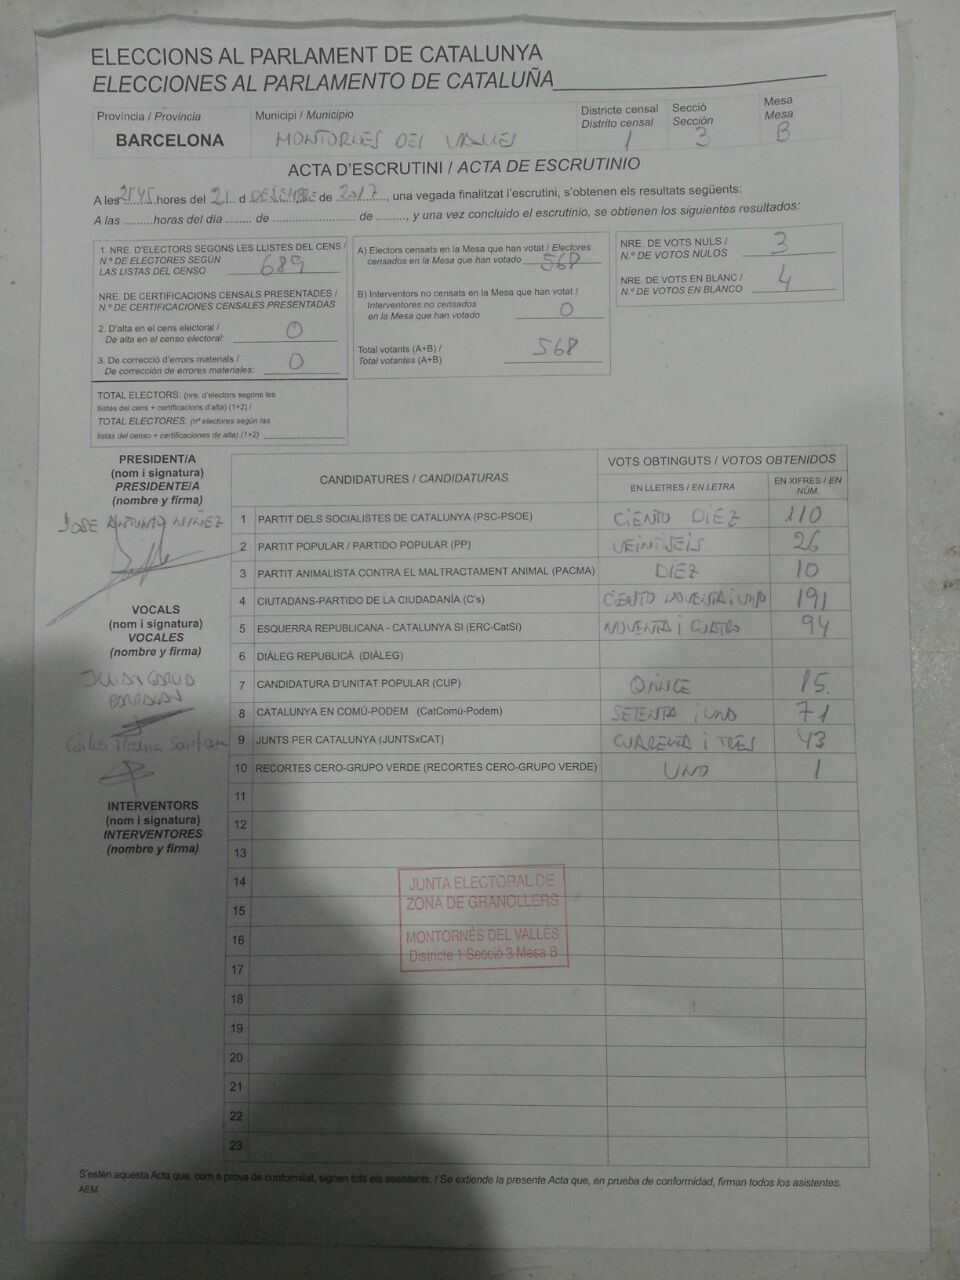 ELECCIONS AL PARLAMENT DE CATALUNYA
ELECCIONES AL PARLAMENTO DE CATALUÑA
Província / Provincia
BARCELONA
Municipi / Municipio
MONTORNES DEL VALLES
Districte censal
Distrito censal
1
Secció
Sección
3
Mesa
Mesa
B
ACTA D'ESCRUTINI / ACTA DE ESCRUTINIO
A les 2145 hores del 21 d DECEMBRE de 2017, una vegada finalitzat l'escrutini, s'obtenen els resultats següents:
A las .........horas del día ........ de ......................... de ........., y una vez concluido el escrutinio, se obtienen los siguientes resultados:
1. NRE. D'ELECTORS SEGONS LES LLISTES DEL CENS /
N.º DE ELECTORES SEGÚN
LAS LISTAS DEL CENSO 689
NRE. DE CERTIFICACIONS CENSALS PRESENTADES /
N.º DE CERTIFICACIONES CENSALES PRESENTADAS
2. D'alta en el cens electoral /
De alta en el censo electoral: 0
3. De correcció d'errors materials /
De corrección de errores materiales: 0
TOTAL ELECTORS: (nre. d'electors segons les
llistes del cens + certificacions d'alta) (1+2) /
TOTAL ELECTORES: (nº electores según las
listas del censo + certificaciones de alta) (1+2)
A) Electors censats en la Mesa que han votat / Electores
censados en la Mesa que han votado 568
B) Interventors no censats en la Mesa que han votat /
Interventores no censados
en la Mesa que han votado 0
Total votants (A+B) /
Total votantes (A+B) 568
NRE. DE VOTS NULS /
N.º DE VOTOS NULOS 3
NRE. DE VOTS EN BLANC /
N.º DE VOTOS EN BLANCO 4
PRESIDENT/A
(nom i signatura)
PRESIDENTE/A
(nombre y firma)
JOSE ANTONIO
VOCALS
(nom i signatura)
VOCALES
(nombre y firma)
JUAN
Carlos
INTERVENTORS
(nom i signatura)
INTERVENTORES
(nombre y firma)
CANDIDATURES / CANDIDATURAS
VOTS OBTINGUTS / VOTOS OBTENIDOS
EN LLETRES / EN LETRA
EN XIFRES / EN NÚM.
1 PARTIT DELS SOCIALISTES DE CATALUNYA (PSC-PSOE) CIENTO DIEZ 110
2 PARTIT POPULAR / PARTIDO POPULAR (PP) VEINTISEIS 26
3 PARTIT ANIMALISTA CONTRA EL MALTRACTAMENT ANIMAL (PACMA) DIEZ 10
4 CIUTADANS-PARTIDO DE LA CIUDADANÍA (C's) CIENTO NOVENTA i UNO 191
5 ESQUERRA REPUBLICANA - CATALUNYA SÍ (ERC-CatSí) NOVENTA i CUATRO 94
6 DIÀLEG REPUBLICÀ (DIÀLEG)
7 CANDIDATURA D'UNITAT POPULAR (CUP) QUINCE 15
8 CATALUNYA EN COMÚ-PODEM (CatComú-Podem) SETENTA i UNO 71
9 JUNTS PER CATALUNYA (JUNTSxCAT) CUARENTA i TRES 43
10 RECORTES CERO-GRUPO VERDE (RECORTES CERO-GRUPO VERDE) UNO 1
11
12
13
14
15
16
17
18
19
20
21
22
23
JUNTA ELECTORAL DE
ZONA DE GRANOLLERS
MONTORNÈS DEL VALLÈS
Districte 1 Secció 3 Mesa B
S'estén aquesta Acta que, com a prova de conformitat, signen tots els assistents. / Se extiende la presente Acta que, en prueba de conformidad, firman todos los asistentes.
AEM